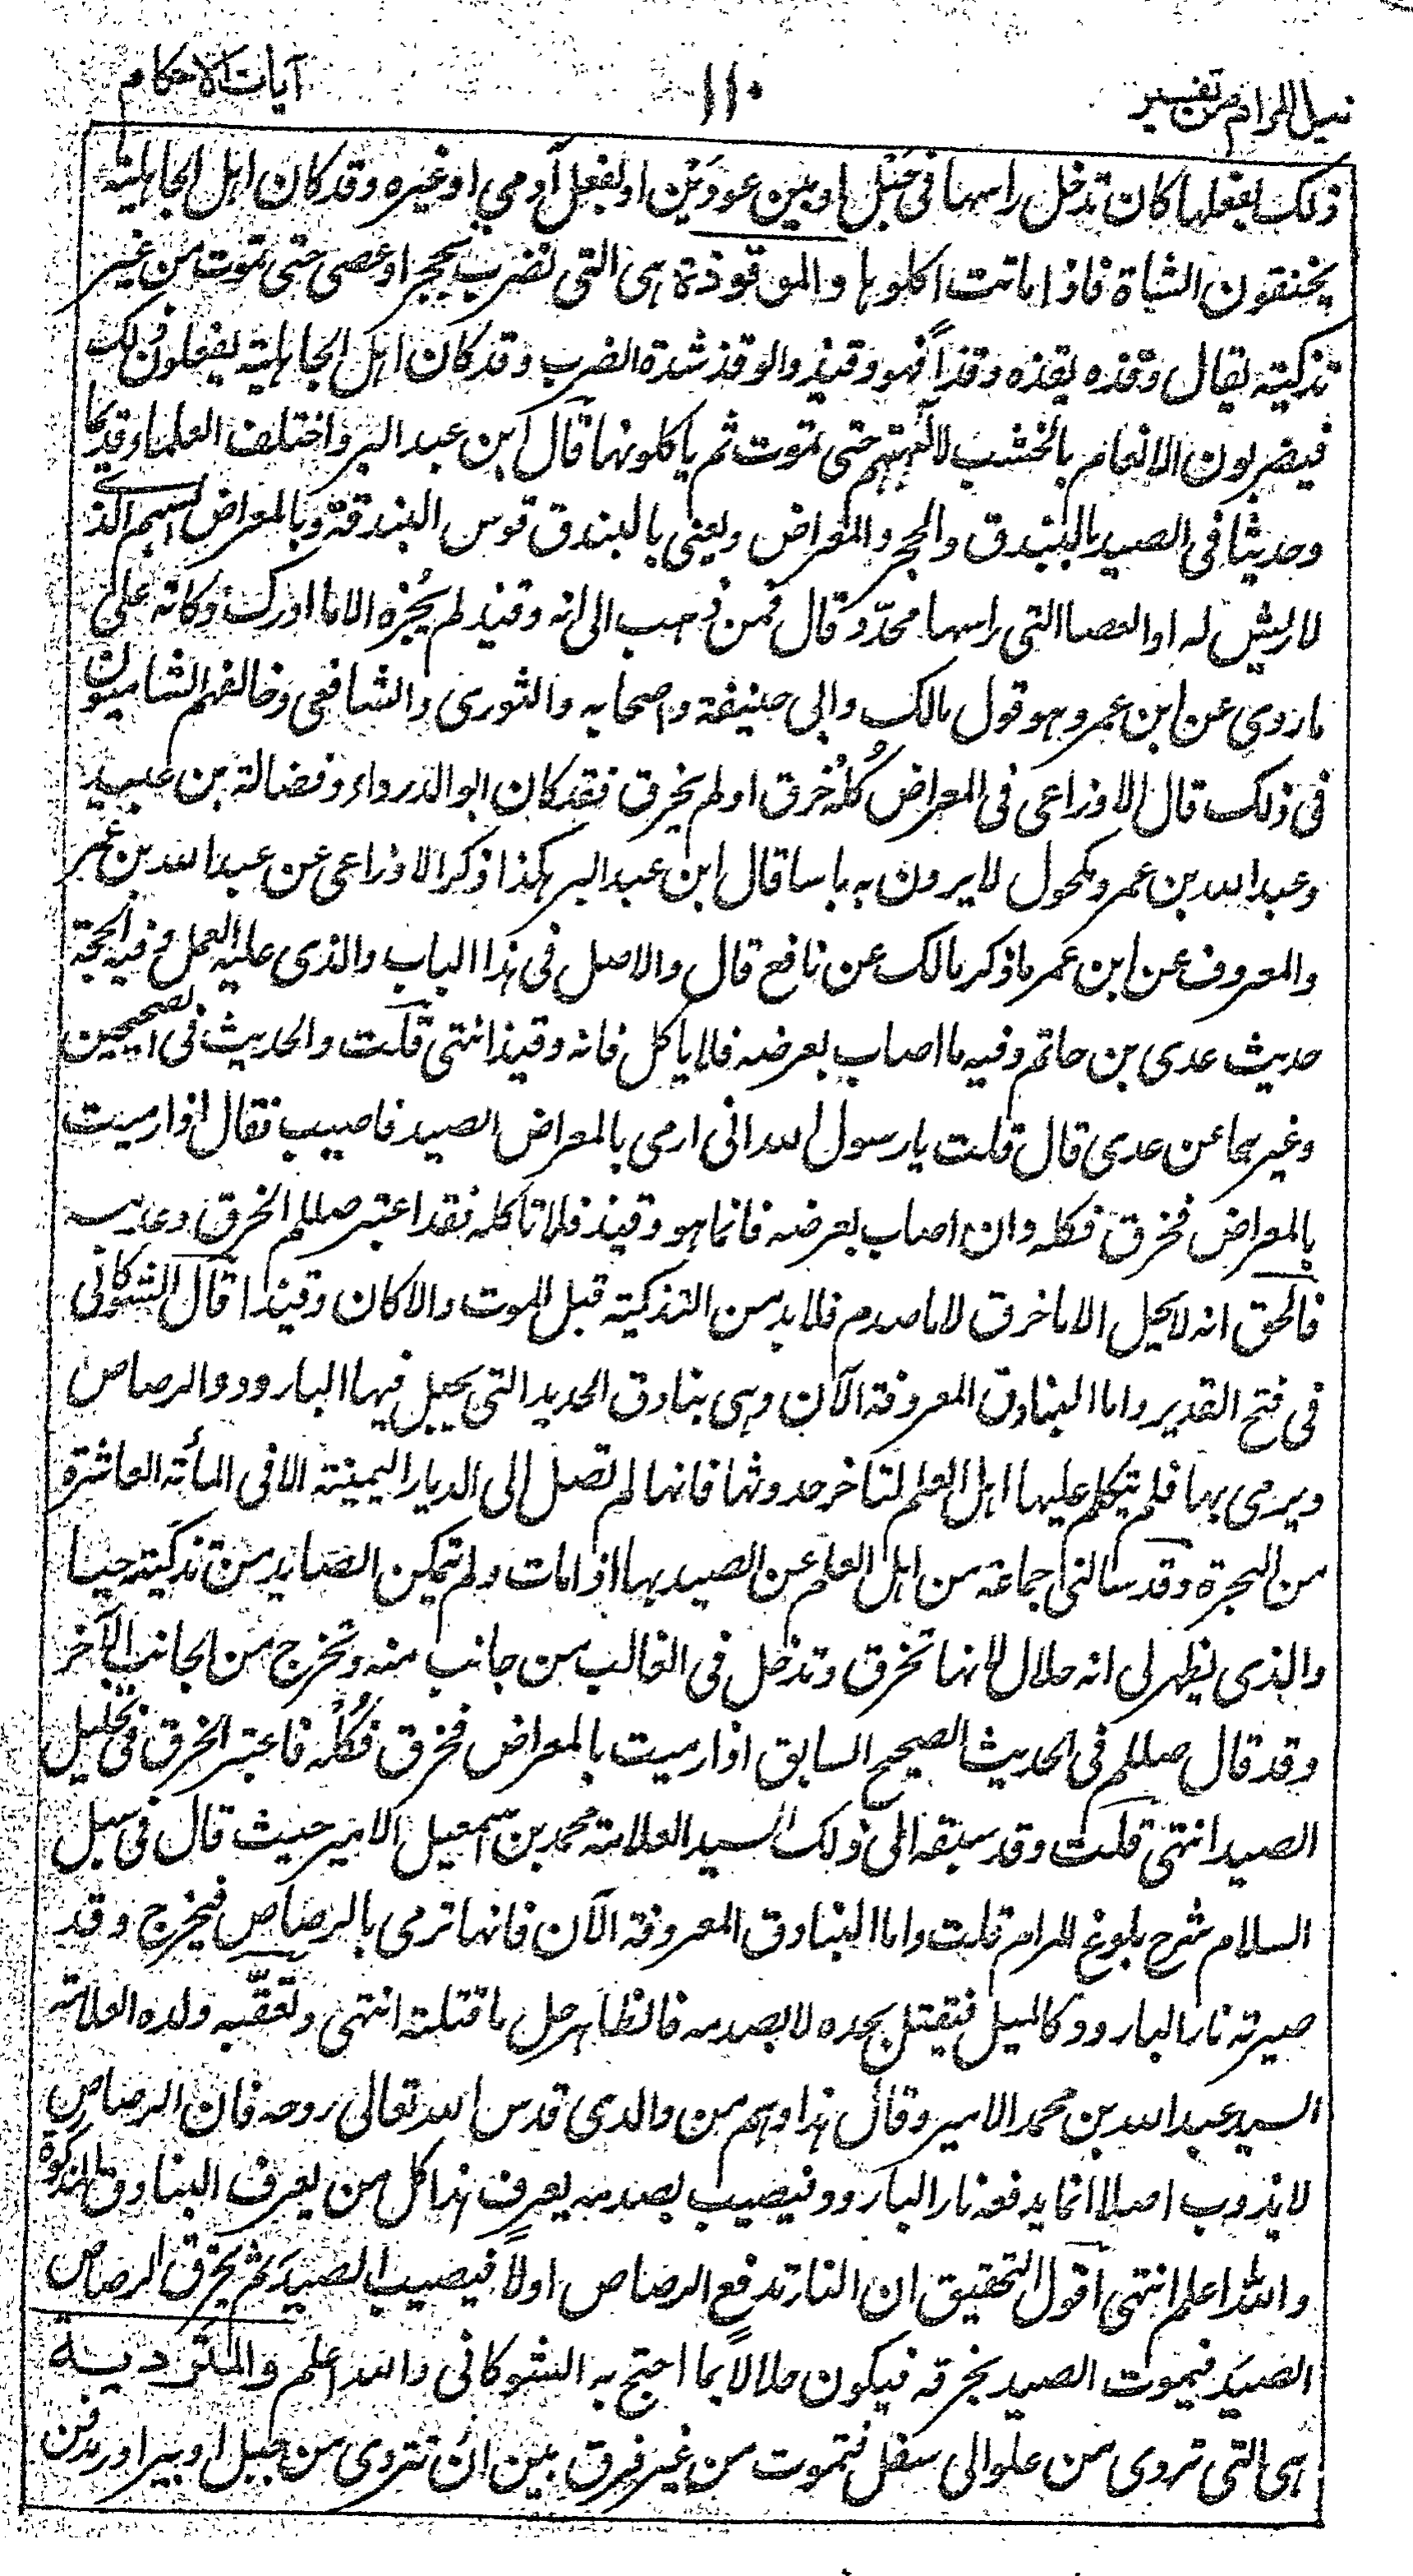 نيل المرام من تفسير
١١٠
آيات الاحكام
ذلك بفعلها كان تدخل راسها فى حَبْل او بين عودَيْن او بفعل آدمي او غيره وقد كان اهل الجاهلية
يخنقون الشاة فاذا ماتت اكلوها والموقوذة هى التى تضرب بحجر او عصى حتى تموت من غير
تذكية يقال وقذه يقذه وقذاً فهو وقيذ والوقذ شدة الضرب وقد كان اهل الجاهلية يفعلون ذلك
فيضربون الانعام بالخشب لآلهتهم حتى تموت ثم ياكلونها قال ابن عبد البر واختلف العلماء قديما
وحديثا فى الصيد بالبندق والحجر والمعراض ويعنى بالبندق قوس البندقة وبالمعراض السهم الذے
لا ريش له او العصا التى راسها محدّد وقال فمن ذهب الى انه وقيذ لم يُجزه الا ما ادرك ذكاته على
ما روى عن ابن عمر وهو قول مالك وابى حنيفة واصحابه والثورى والشافعى وخالفهم الشاميون
فى ذلك قال الاوزاعى فى المعراض كُلْهُ خرق او لم يخرق فقد كان ابو الدرداء وفضالة بن عبيد
وعبد الله بن عمر ومكحول لا يرون به باسا قال ابن عبد البر هكذا ذكر الاوزاعى عن عبد الله بن عمر
والمعروف عن ابن عمر ما ذكر مالك عن نافع قال والاصل فى هذا الباب والذى عليه العمل وفيه الحجة
حديث عدى بن حاتم وفيه ما اصاب بعرضه فلا ياكل فانه وقيذ انتهى قلت والحديث فى الصحيحين
وغيرهما عن عدى قال قلت يا رسول الله انى ارمى بالمعراض الصيد فاصيب فقال اذا رميت
بالمعراض فخرق فكله وان اصاب بعرضه فانما هو وقيذ فلا تاكله فقد اعتبر صللم الخرق وعدمه
فالحق انه لا يحل الا ما خرق لا ما صدم فلا بد من التذكية قبل الموت والا كان وقيذا قال الشوكانى
فى فتح القدير واما البنادق المعروفة الآن وهى بنادق الحديد التى يجعل فيها البارود والرصاص
ويرمى بها فلم يتكلم عليها اهل العلم لتاخر حدوثها فانها لم تصل الى الديار اليمنية الا فى المأته العاشرة
من الهجرة وقد سالنى جماعة من اهل العلم عن الصيد بها اذا مات ولم يتمكن الصايد من تذكيته حيا
والذى يظهر لى انه حلال لانها تخرق وتدخل فى الغالب من جانب منه وتخرج من الجانب الآخر
وقد قال صللم فى الحديث الصحيح السابق اذا رميت بالمعراض فخرق فكُلْه فاعتبر الخرق فى تحليل
الصيد انتهى قلت وقد سبقه الى ذلك السيد العلامة محمد بن اسمعيل الامير حيث قال فى سبل
السلام شرح بلوغ المرام قلت واما البنادق المعروفة الآن فانها ترمى بالرصاص فيخرج وقد
صيرته نار البارود كالميل فيقتل بحده لا بصدمه فالظاهر حل ما قتلته انتهى وتعقّبه ولده العلامة
السيد عبد الله بن محمد الامير وقال هذا وهم من والدى قدس الله تعالى روحه فان الرصاص
لا يذوب اصلا انما يدفعه نار البارود فيصيب بصدمه يعرف هذا كل من يعرف البنادق المذكورة
والله اعلم انتهى اقول التحقيق ان النار تدفع الرصاص اولاً فيصيب الصيدَ ثم يخرق الرصاص
الصيدَ فيموت الصيد بخرقه فيكون حلالاً بما احتج به الشوكانى والله اعلم والمتردية
هى التى تردى من علو الى سفل فتموت من غير فرق بين ان تتردى من جبل او بير او مدفن